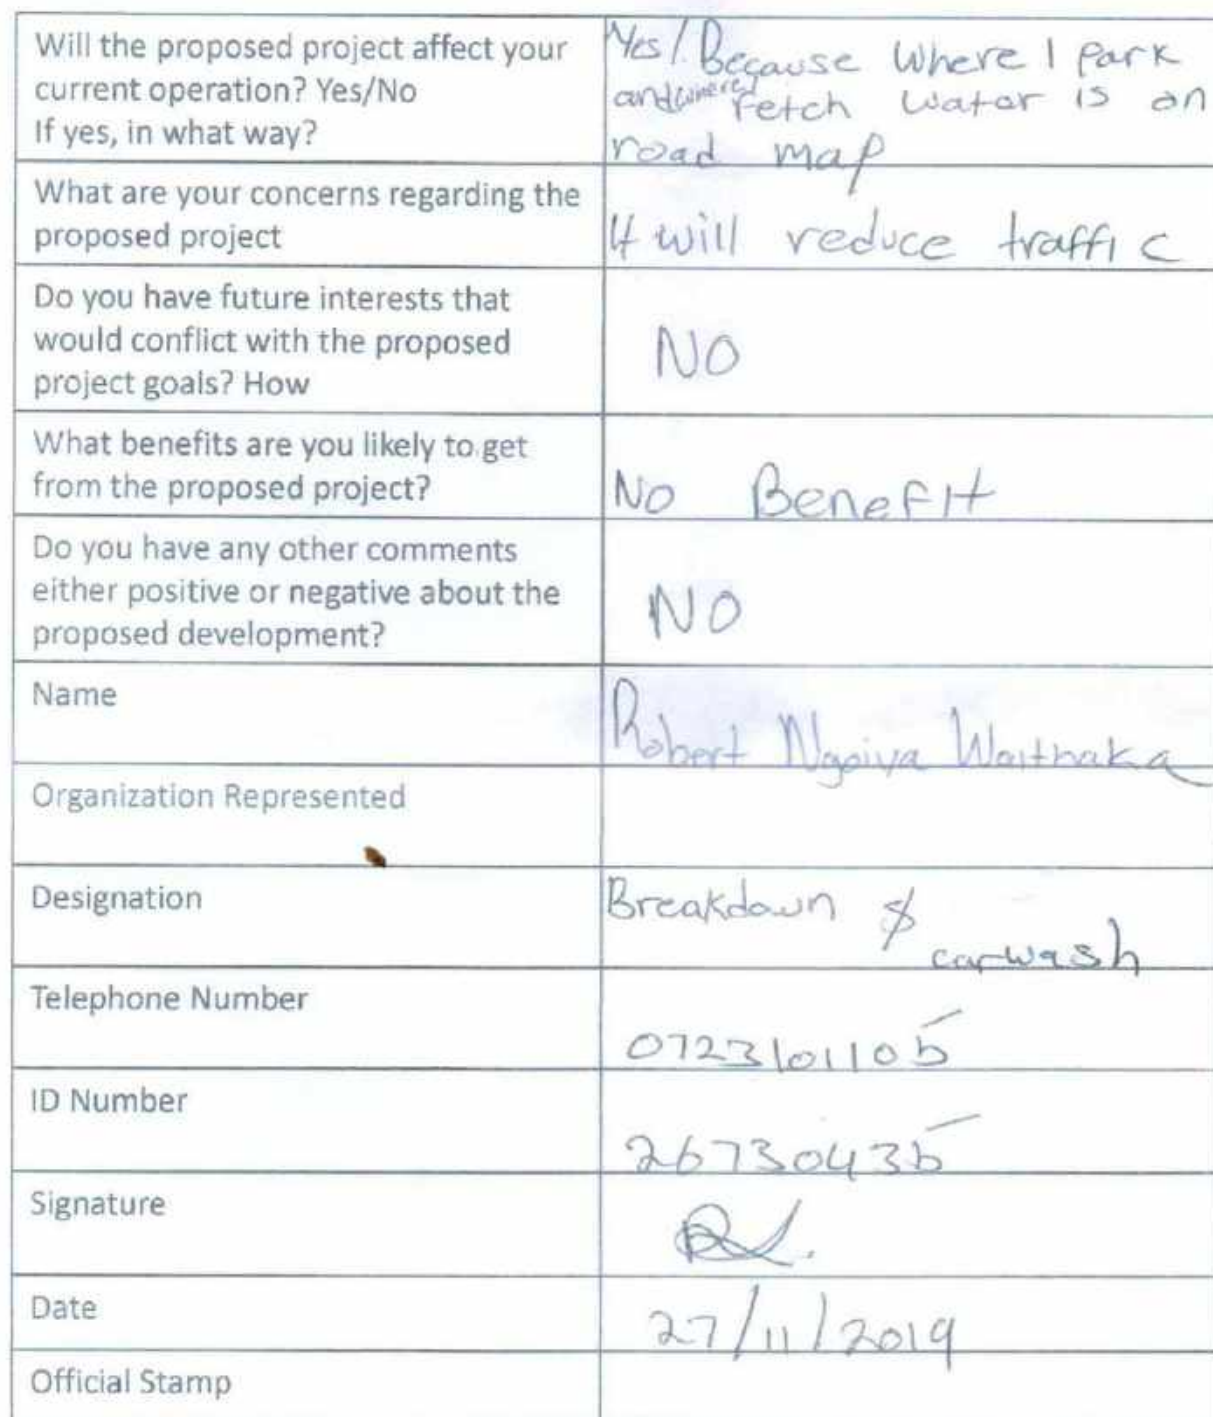 Will the proposed project affect your
current operation? Yes/No
If yes, in what way?
Yes/ Because Where I Park
and where I fetch water is on
road map
What are your concerns regarding the
proposed project
It will reduce traffic
Do you have future interests that
would conflict with the proposed
project goals? How
NO
What benefits are you likely to get
from the proposed project?
No Benefit
Do you have any other comments
either positive or negative about the
proposed development?
NO
Name
Robert Ngoiya Waithaka
Organization Represented
Designation
Breakdown &
carwash
Telephone Number
0723101105
ID Number
26730435
Signature
Date
27/11/2019
Official Stamp